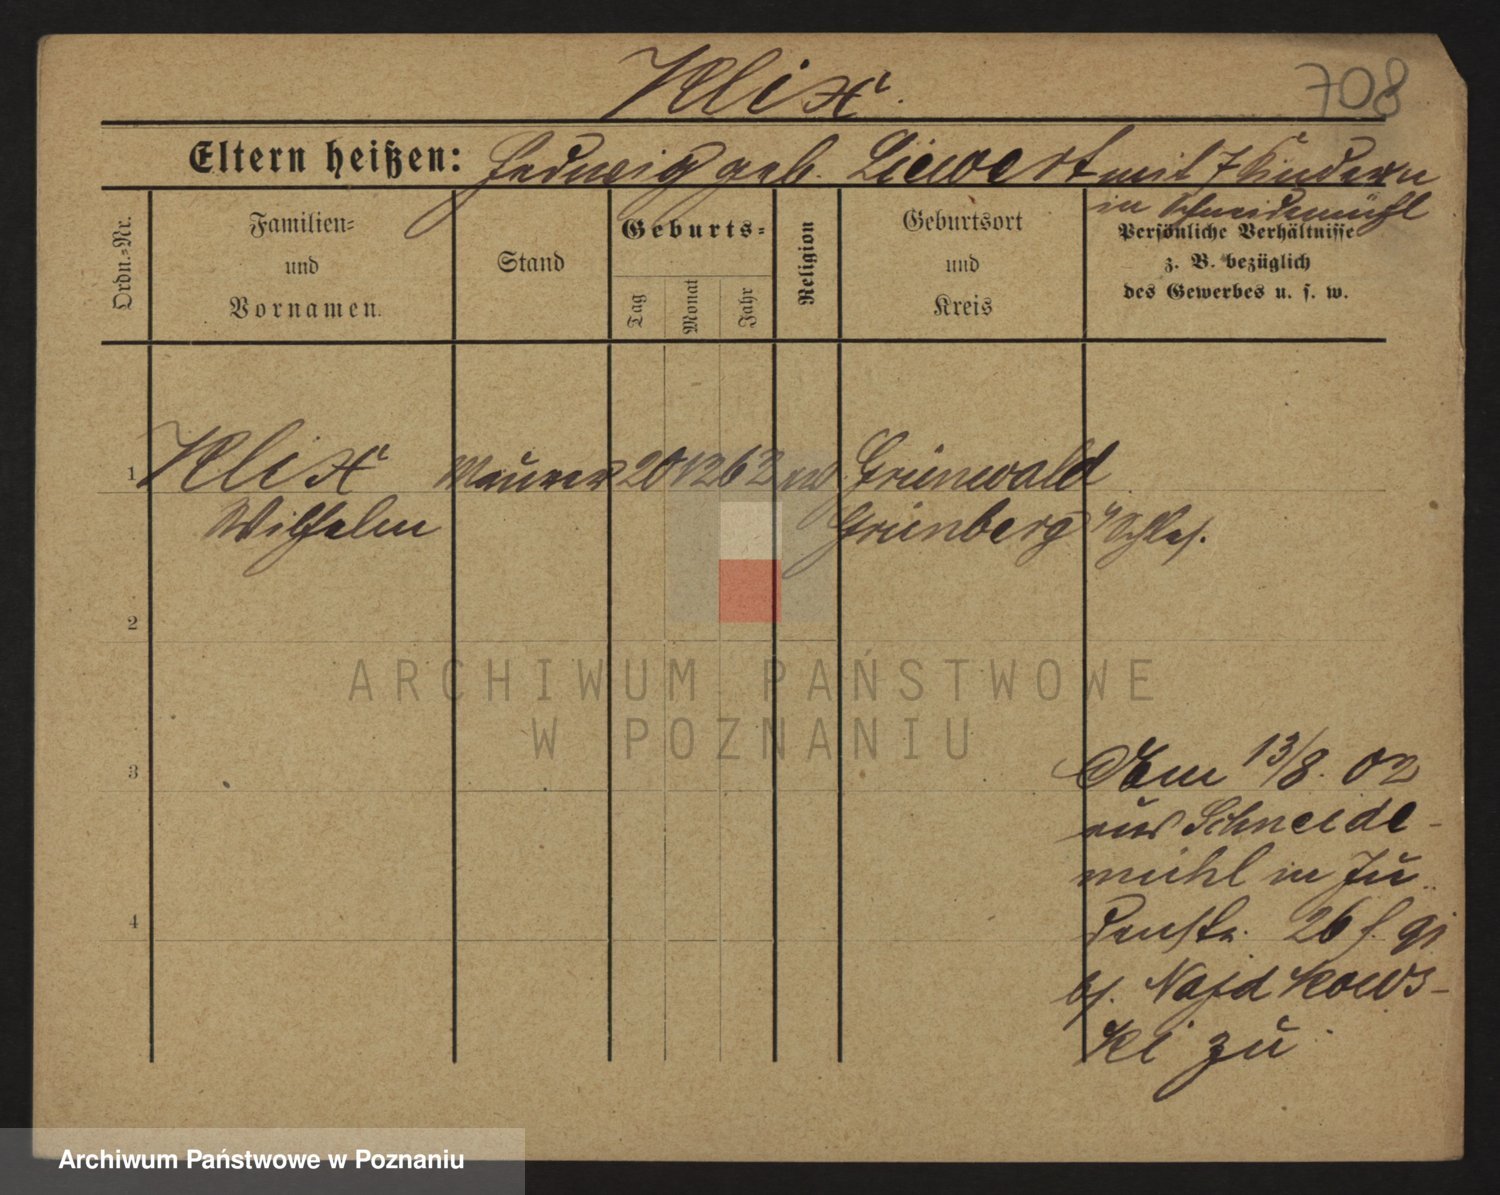 Klix.
708
Eltern heißen: Hedwig geb. Liewert mit 7 Kindern
in Schneidemühl
Ordn.-Nr.
Familien-
und
Vornamen.
Stand
Geburts-
Tag
Monat
Jahr
Religion
Geburtsort
und
Kreis
Persönliche Verhältnisse
z. B. bezüglich
des Gewerbes u. s. w.
1 Klix Maurer 20 12 62 ev. Grünwald
Wilhelm Grünberg i/Schles.
2
ARCHIWUM PAŃSTWOWE
W POZNANIU
3
Am 13/8. 02
aus Schneide-
mühl in Ju-
4
denstr. 26
bei Najdkows-
ki zu
Archiwum Państwowe w Poznaniu